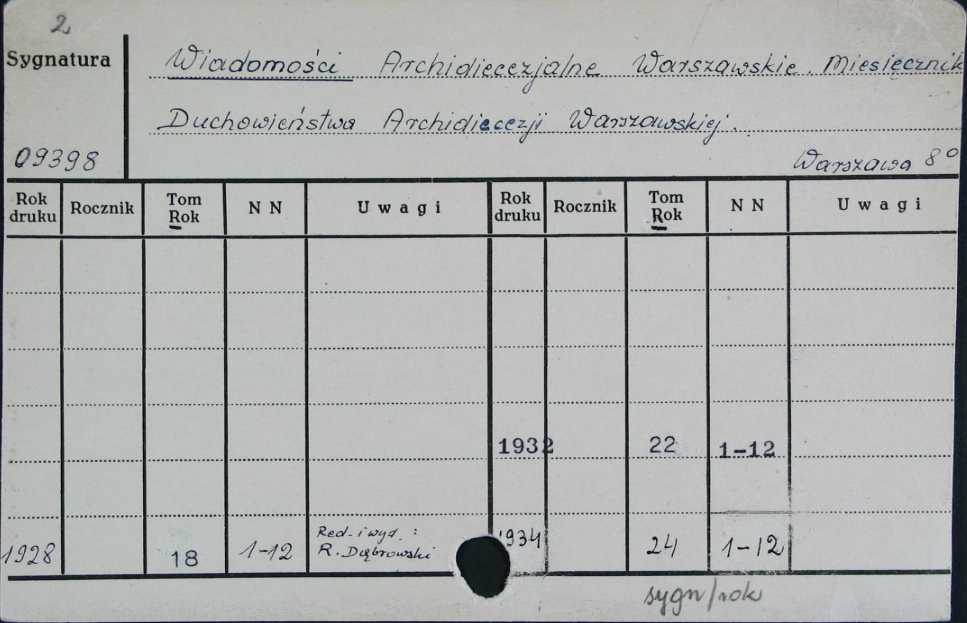 2
Sygnatura
Wiadomości Archidiecezjalne Warszawskie. Miesięcznik
Duchowieństwa Archidiecezji Warszawskiej.
09398
Warszawa 8°
Rok druku Rocznik Tom Rok N N Uwagi Rok druku Rocznik Tom Rok N N Uwagi
1932 22 1-12
1928 18 1-12 Red. i wyd. : R. Dąbrowski 1934 24 1-12
sygn/rok